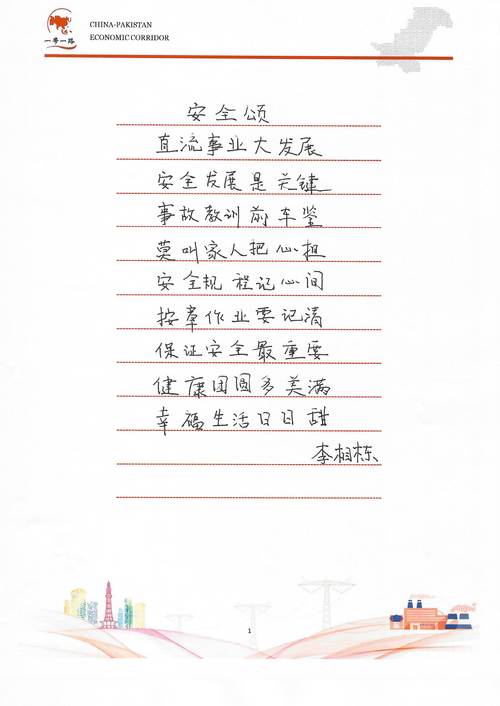 一带一路
CHINA-PAKISTAN
ECONOMIC CORRIDOR
安全颂
直流事业大发展
安全发展是关键
事故教训前车鉴
莫叫家人把心担
安全规程记心间
按章作业要记清
保证安全最重要
健康团圆多美满
幸福生活日日甜
李相栋
1